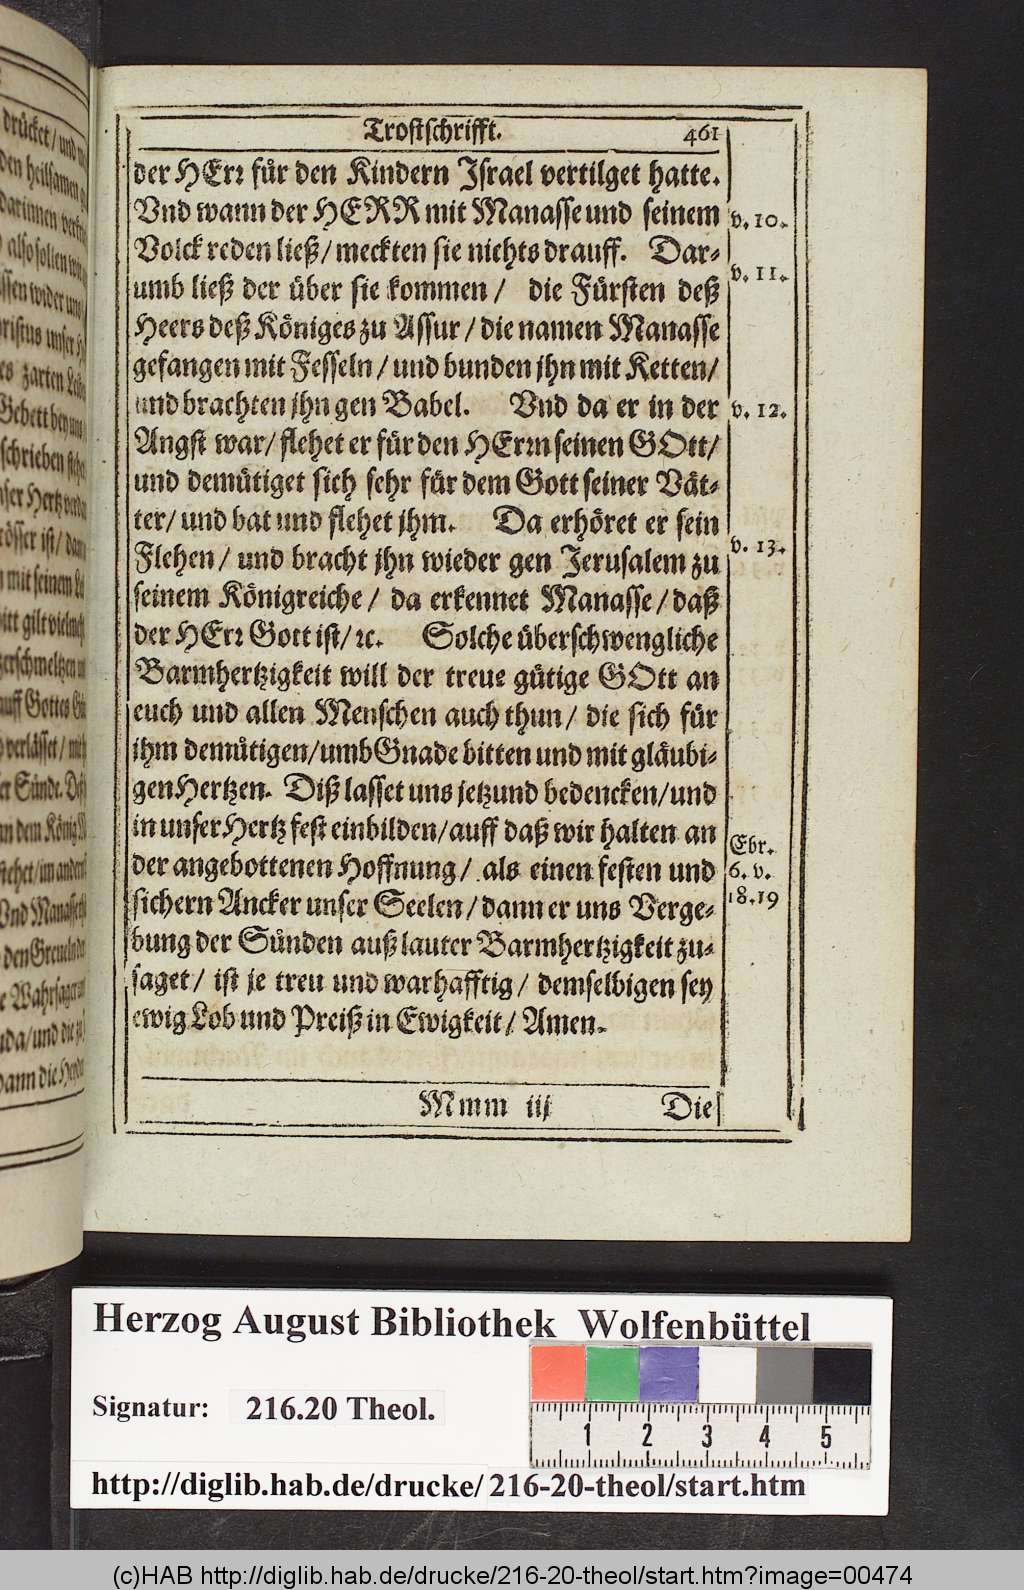 Trostschrifft. 461
der HErr für den Kindern Israel vertilget hatte.
Vnd wann der HERR mit Manasse und seinem
v. 10.
Volck reden ließ/ meckten sie nichts drauff. Dar-
v. 11.
umb ließ der über sie kommen/ die Fürsten deß
Heers deß Königes zu Assur/ die namen Manasse
gefangen mit Fesseln/ und bunden jhn mit Ketten/
und brachten jhn gen Babel. Vnd da er in der
v. 12.
Angst war/ flehet er für den HErrn seinen GOtt/
und demütiget sich sehr für dem Gott seiner Vät-
ter/ und bat und flehet jhm. Da erhöret er sein
v. 13.
Flehen/ und bracht jhn wieder gen Jerusalem zu
seinem Königreiche/ da erkennet Manasse/ daß
der HErr Gott ist/ ꝛc. Solche überschwengliche
Barmhertzigkeit will der treue gütige GOtt an
euch und allen Menschen auch thun/ die sich für
ihm demütigen/ umb Gnade bitten und mit gläubi-
gen Hertzen. Diß lasset uns jetzund bedencken/ und
in unser Hertz fest einbilden/ auff daß wir halten an
der angebottenen Hoffnung/ als einen festen und
Ebr.
6. v.
18.19
sichern Ancker unser Seelen/ dann er uns Verge-
bung der Sünden auß lauter Barmhertzigkeit zu-
saget/ ist je treu und warhafftig/ demselbigen sey
ewig Lob und Preiß in Ewigkeit/ Amen.
Mmm iij Die
Herzog August Bibliothek Wolfenbüttel
Signatur: 216.20 Theol.
1 2 3 4 5
http://diglib.hab.de/drucke/216-20-theol/start.htm
(c)HAB http://diglib.hab.de/drucke/216-20-theol/start.htm?image=00474